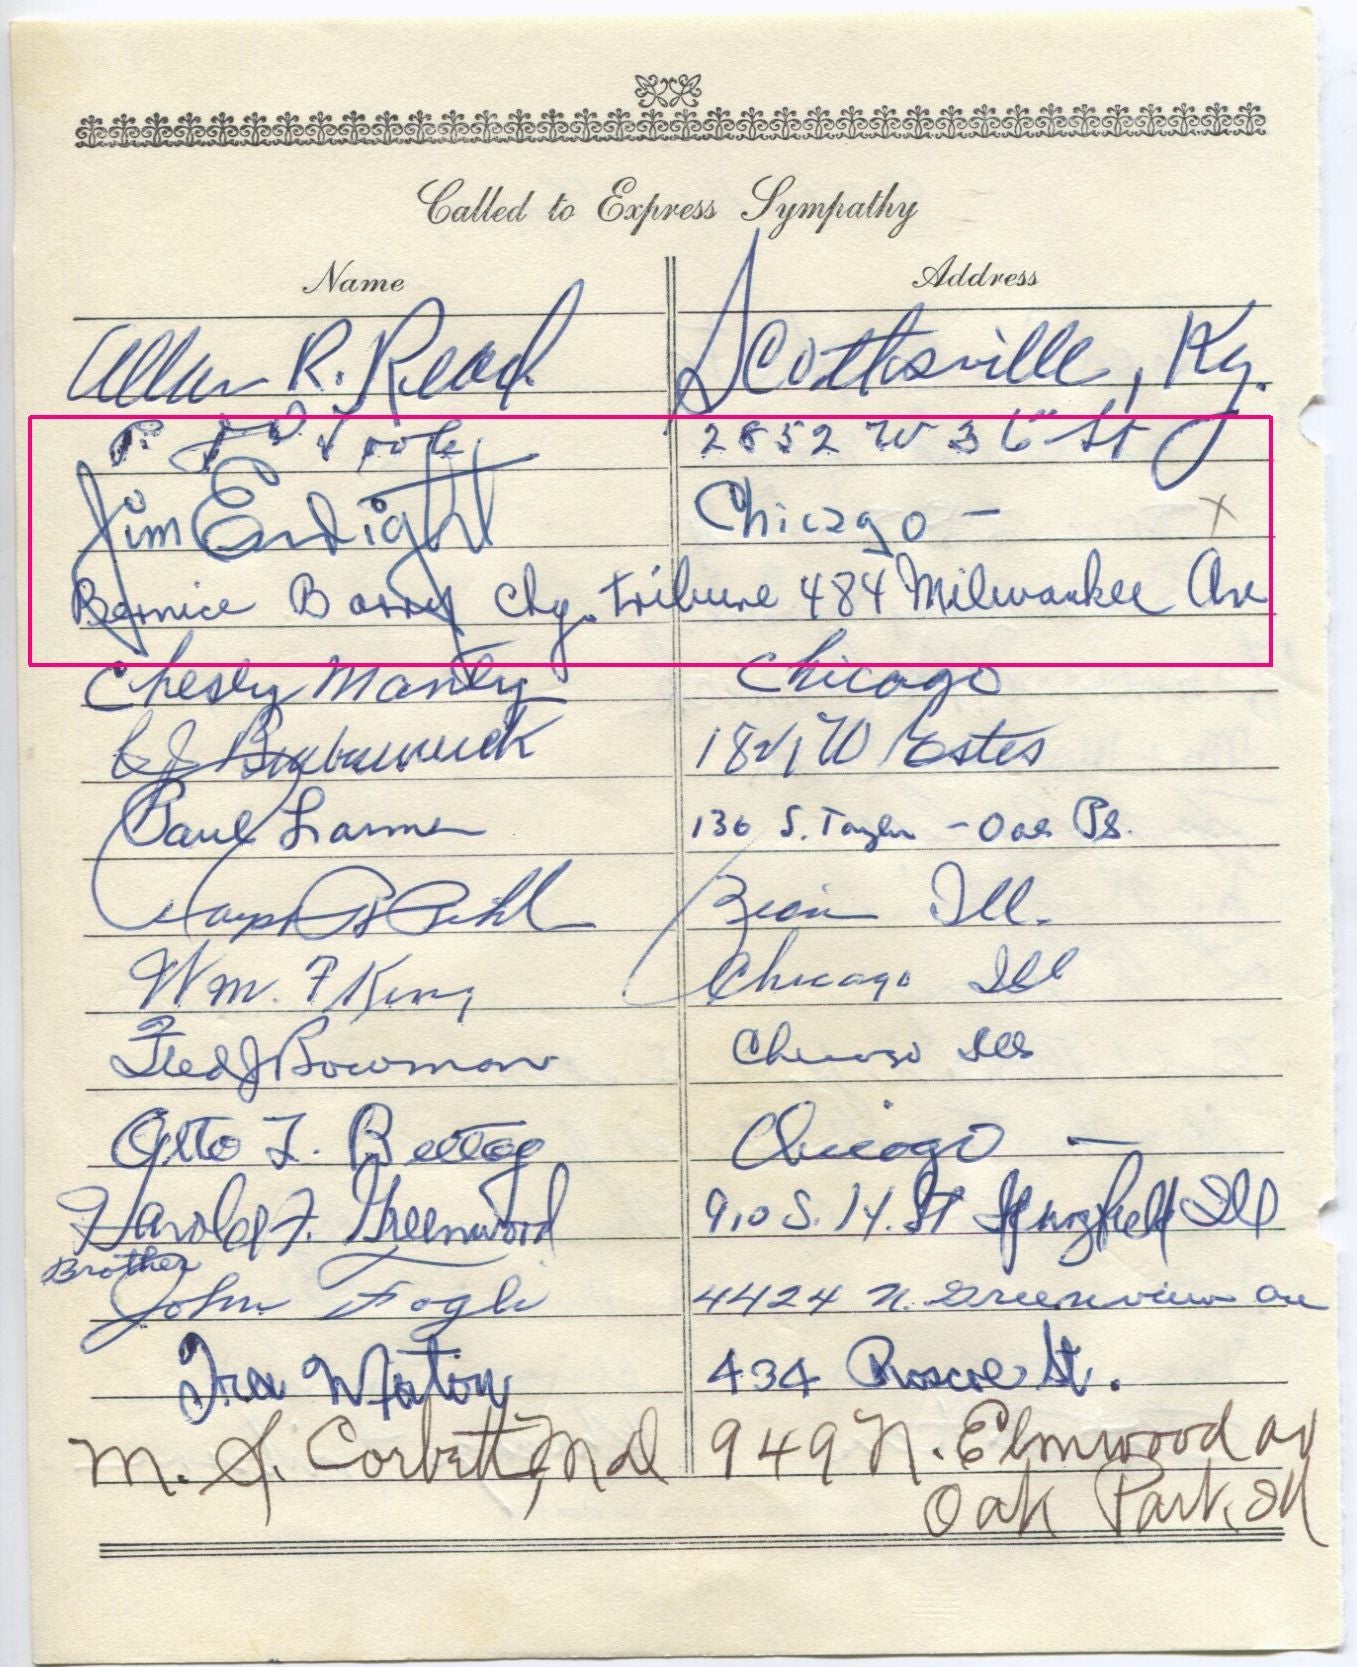 Called to Express Sympathy
Name Address
Allan R. Read Scottsville, Ky.
P. 2852 W 36" St
Jim Enright Chicago - x
Bernice Barry Chg. tribune 484 Milwaukee Ave
Chesly Manly Chicago
1821 W Estes
Paul 136 S. Taylor - Oak Pk.
Ralph Zion Ill.
Wm. F King Chicago Ill
Fred J Bowman Chicago Ill
Otto T. Chicago -
Harold F. Greenwood 910 S. 14. St Springfield Ill
Brother
John Fogli 4424 N. Greenview Ave
Ira 434 Roscoe St.
M. J. Corbett, Md 949 N. Elmwood av
Oak Park. Ill